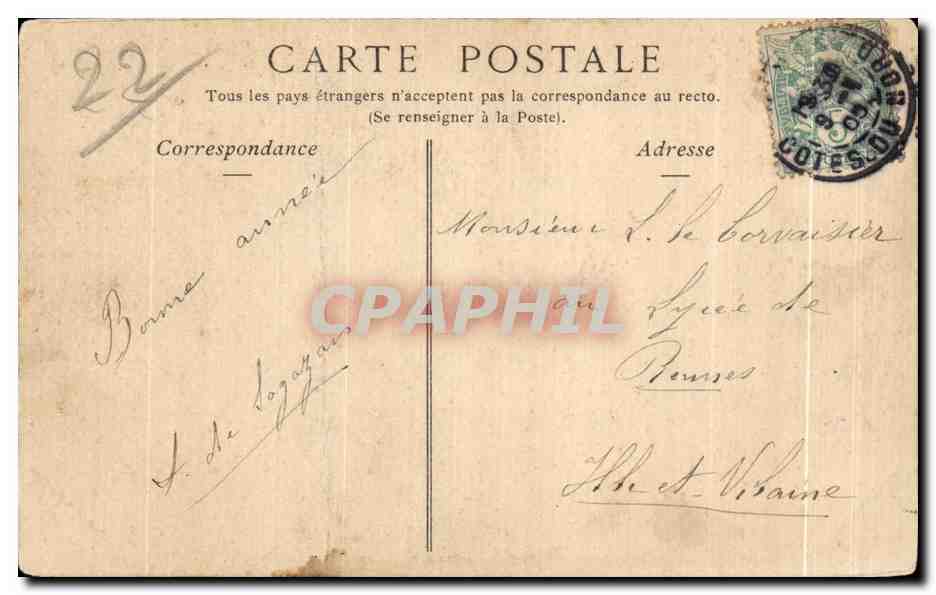 22
CARTE POSTALE
Tous les pays étrangers n'acceptent pas la correspondance au recto.
(Se renseigner à la Poste).
Correspondance
Adresse
COTES-DU-NORD
5
Bonne année
de
Monsieur L. le Corvaisier
au Lycée de
Rennes
Ille et Vilaine
CPAPHIL